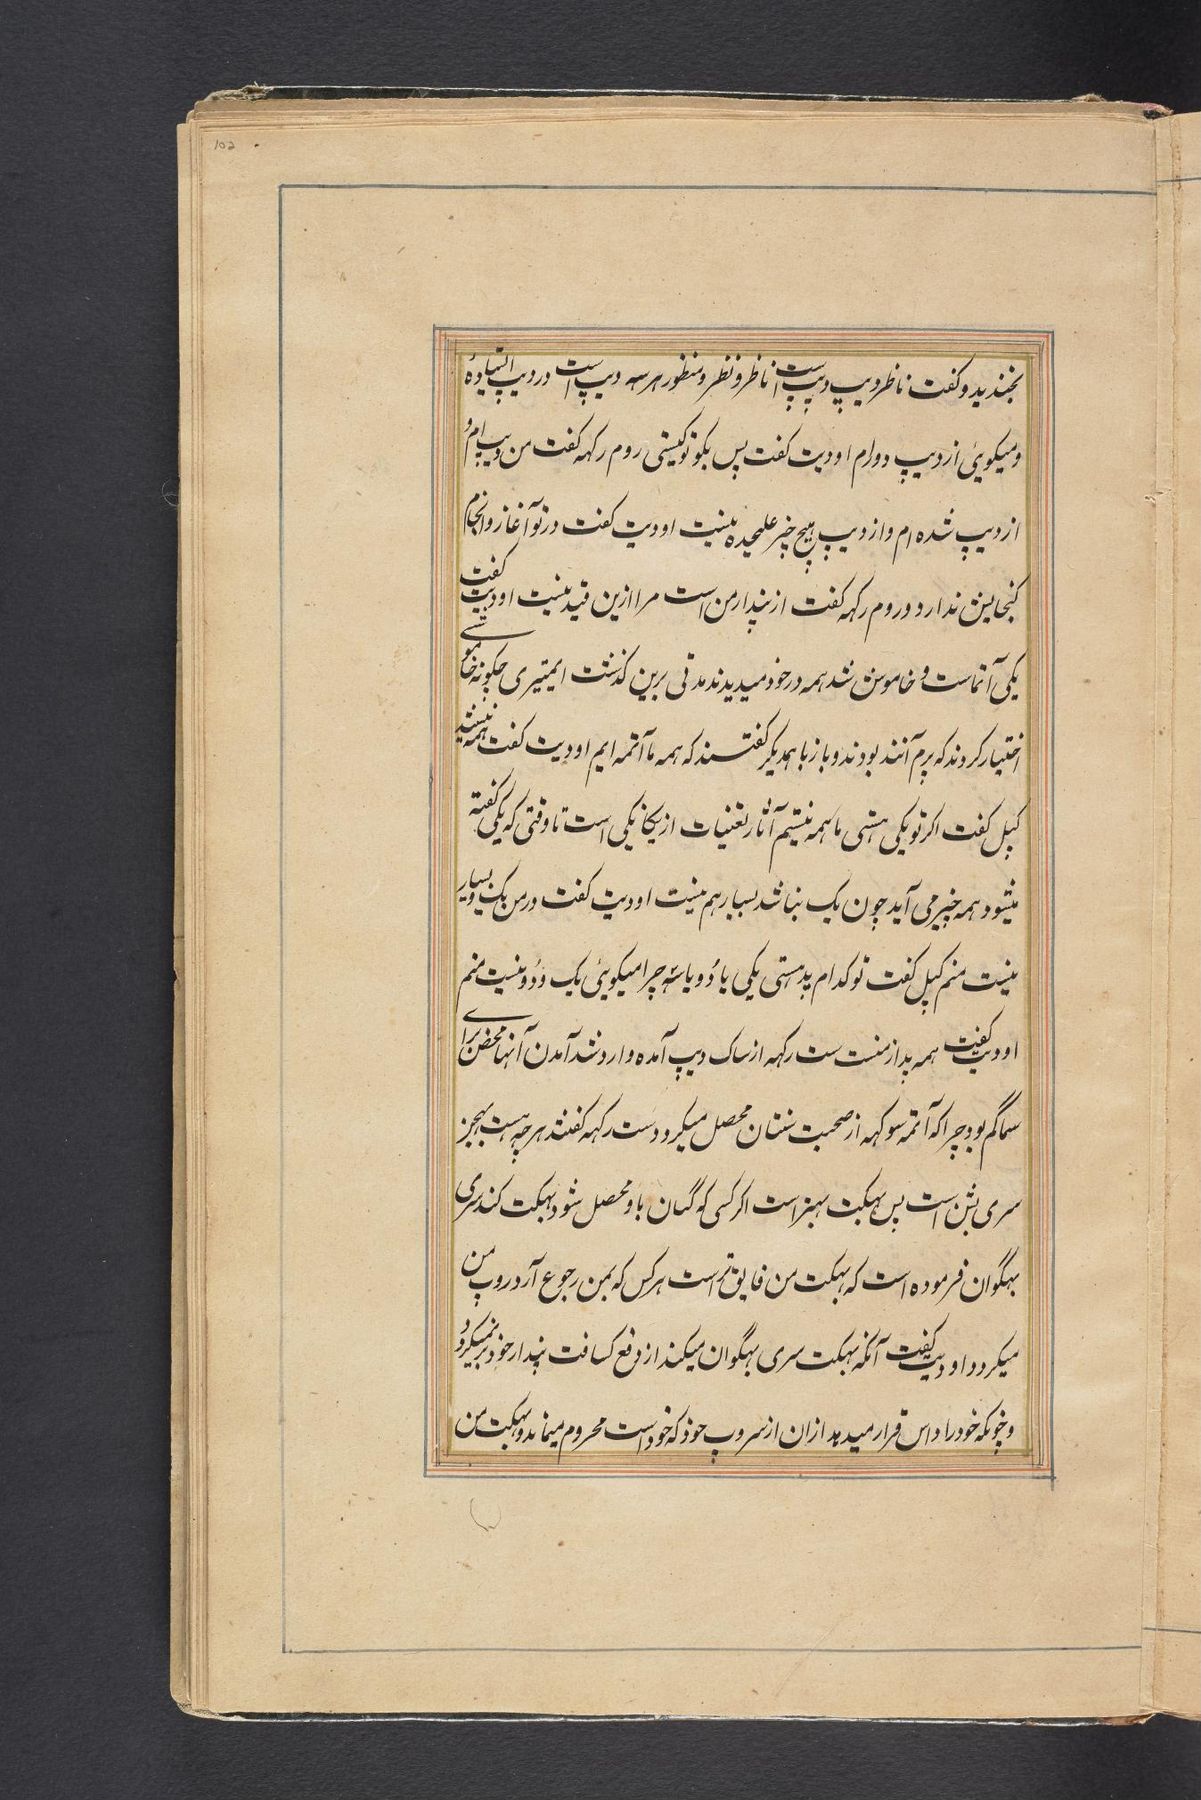 102
بخندید و کفت ناظر دیپ دیپ است ناظر و نظر و منظور هر سه دیپ است در دیپ استاده
و میکوئی از دیپ دورام اودیت کفت پس بکو تو کیستی روم رکهه کفت من دیپ ام و
از دیپ شده ام و از دیپ هیچ چیز علیحده نیست اودیت کفت در تو آغاز و انجام
کنجایش ندارد و روم رکهه کفت از پندار من است مرا ازین قید نیست اودیت کفت
یکی آتماست و خاموش شد همه در خود میدیدند مدتی برین کذشت ای میتری چکونه خاموشی
اختیار کردند که پرم آنند بودند و باز با همدیکر کفتند که همه ما آتمه ایم اودیت کفت همه نیستید
کپل کفت اکر تو یکی هستی ما همه نیستیم آثار تعنیات از یکا یکی است تا وقتی که یکی کفته
میشود همه چیز می آید چون یک نباشد بسیار هم نیست اودیت کفت در من یک و بسیار
نیست منم کپل کفت تو کدام پد هستی یکی یا دو یا سه چرا میکوئی یک و دو نیست منم
اودیت کفت همه پد از منست ست رکهه از ساک دیپ آمده وارد شد آمدن آنها محض برای
سماکم بود چرا که آتمه سوکهه از صحبت سنتان محصل میکردد ست رکهه کفتند هر چه هست بهجز
سری بشن است پس بهکت بهتر است اکر کسی که کیان باو محصل شود بهکت کند سری
بهکوان فرموده است که بهکت من فایق تر است هر کس که بمن رجوع آرد روپ من
میکردد اودیت کفت آنکه بهکت سری بهکوان میکند از رفع کسافت پندار خود بر نمیکردد
و چونکه خود را داس قرار میدهد ازان از سروپ خود که خود است محروم میماند و بهکت من